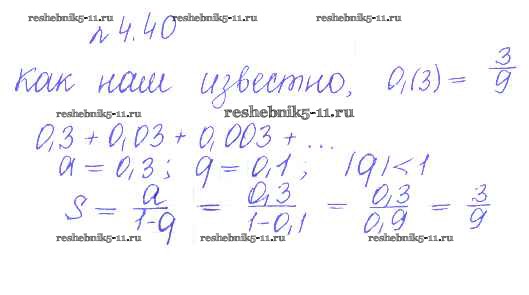 reshebnik5-11.ru reshebnik5-11.ru reshebnik5-11.ru
№ 4.40
Как нам известно, 0,(3) = 3/9
reshebnik5-11.ru reshebnik5-11.ru
0,3 + 0,03 + 0,003 + ...
a = 0,3; q = 0,1; |q| < 1
S = a/(1-q) = 0,3/(1-0,1) = 0,3/0,9 = 3/9
reshebnik5-11.ru reshebnik5-11.ru reshebnik5-11.ru